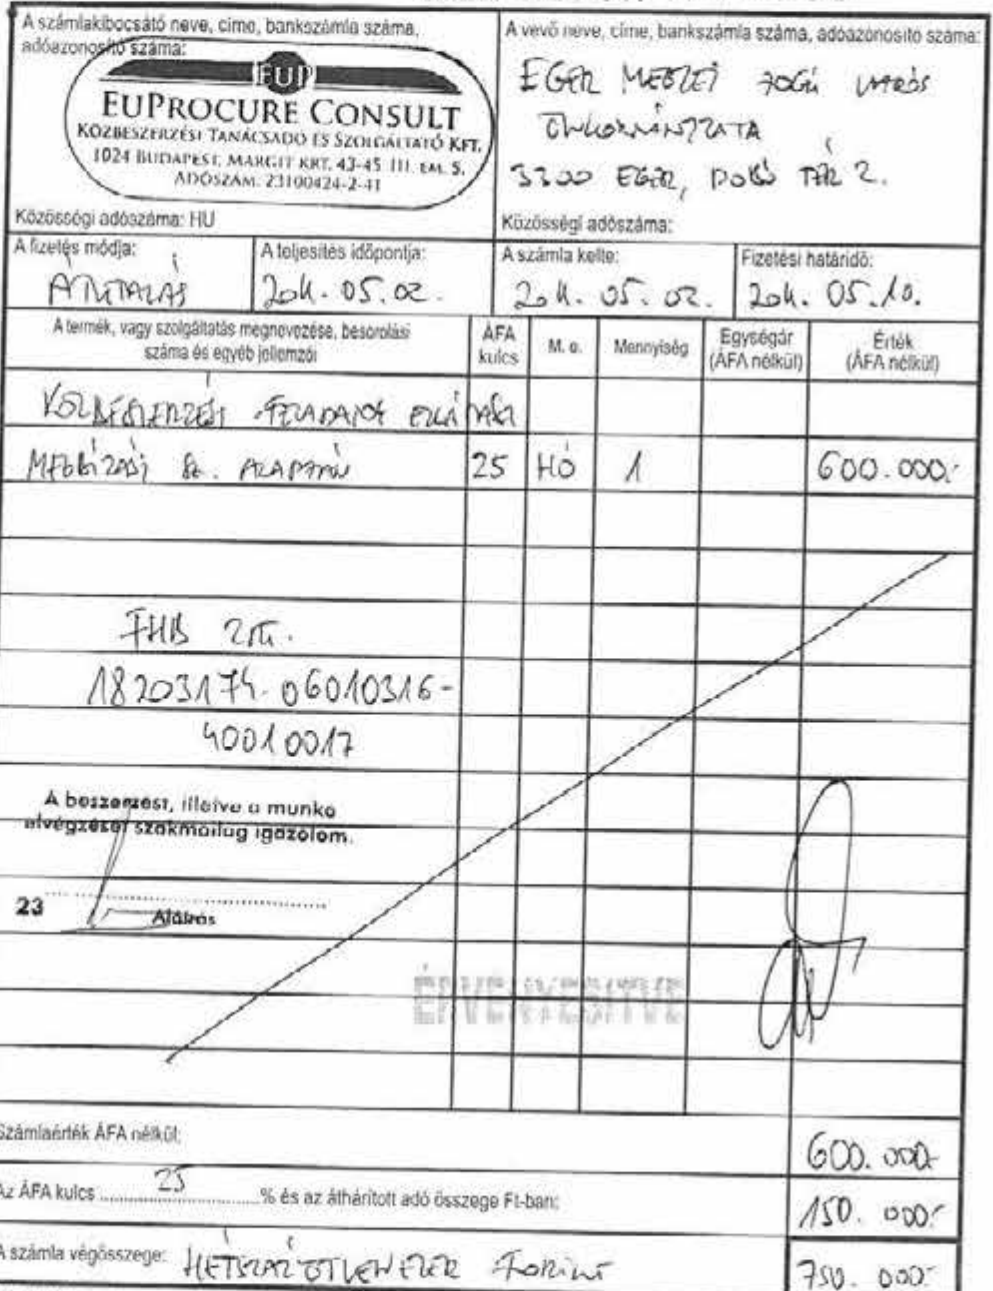 A számlakibocsátó neve, címe, bankszámla száma,
adóazonosító száma:
EUP
EUPROCURE CONSULT
KÖZBESZERZÉSI TANÁCSADÓ ÉS SZOLGÁLTATÓ KFT.
1024 BUDAPEST, MARGIT KRT. 43-45. III. EM. 5.
ADÓSZÁM: 23100424-2-41
Közösségi adószáma: HU
A vevő neve, címe, bankszámla száma, adóazonosító száma:
EGER MEGYEI JOGÚ VÁROS
ÖNKORMÁNYZATA
3300 EGER, DOBÓ TÉR 2.
Közösségi adószáma:
A fizetés módja:
ÁTUTALÁS
A teljesítés időpontja:
2011. 05. 02.
A számla kelte:
2011. 05. 02.
Fizetési határidő:
2011. 05. 10.
A termék, vagy szolgáltatás megnevezése, besorolási
száma és egyéb jellemzői
ÁFA
kulcs
M. e.
Mennyiség
Egységár
(ÁFA nélkül)
Érték
(ÁFA nélkül)
KÖZBESZERZÉSI FELADATOK ELLÁTÁSA
MEGBÍZÁSI SZ. ALAPJÁN 25 HÓ 1 600.000.-
FHB Zrt.
18203174-06010316-
40010017
A beszerzést, illetve a munka
elvégzését szakmailag igazolom.
23
Aláírás
ÉRVÉNYESÍTVE
Számlaérték ÁFA nélkül: 600.000.-
Az ÁFA kulcs 25 % és az áthárított adó összege Ft-ban: 150.000.-
A számla végösszege: HÉTSZÁZÖTVENEZER FORINT 750.000.-